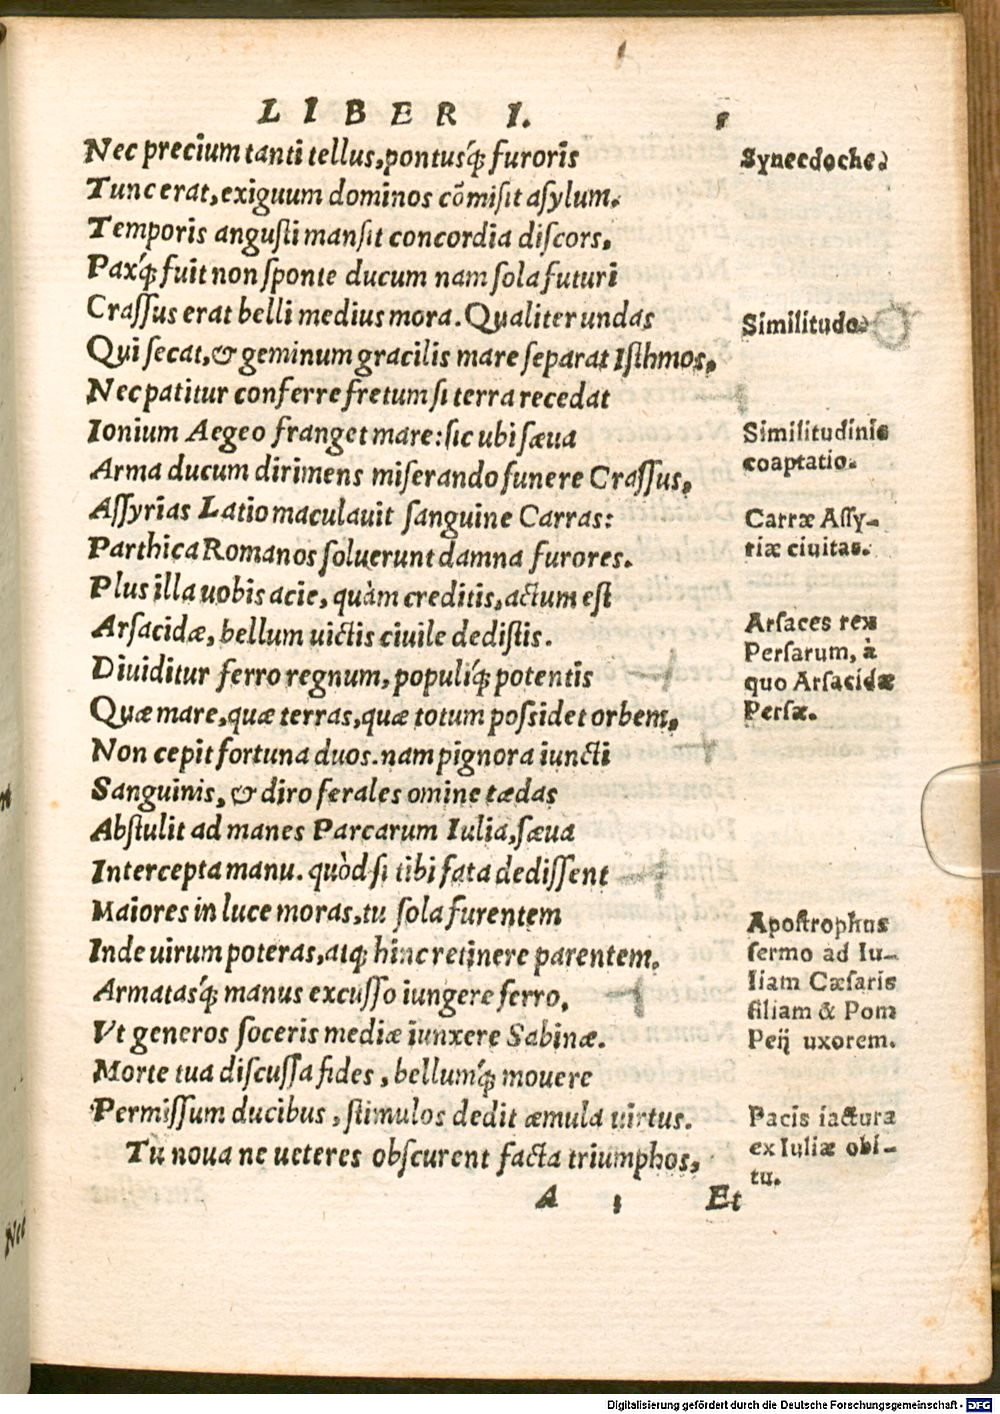 LIBER I.
Nec precium tanti tellus, pontusq́ꝫ furoris
Tunc erat, exiguum dominos cõmiſit aſylum.
Temporis anguſti manſit concordia diſcors,
Paxq́ꝫ fuit non ſponte ducum nam ſola futuri
Craſſus erat belli medius mora. Qualiter undas
Qui ſecat, & geminum gracilis mare ſeparat Iſthmos,
Nec patitur conferre fretum ſi terra recedat
Ionium Aegeo franget mare: ſic ubi ſæua
Arma ducum dirimens miſerando funere Craſſus,
Aſſyrias Latio maculauit ſanguine Carras:
Parthica Romanos ſoluerunt damna furores.
Plus illa uobis acie, quàm creditis, actum eſt
Arſacidæ, bellum uictis ciuile dediſtis.
Diuiditur ferro regnum, populiq́ꝫ potentis
Quæ mare, quæ terras, quæ totum poſsidet orbem,
Non cepit fortuna duos. nam pignora iuncti
Sanguinis, & diro ferales omine tædas
Abſtulit ad manes Parcarum Iulia, ſæua
Intercepta manu. quòd ſi tibi fata dediſſent
Maiores in luce moras, tu ſola furentem
Inde uirum poteras, atqꝫ hinc retinere parentem,
Armatasq́ꝫ manus excuſſo iungere ferro,
Vt generos ſoceris mediæ iunxere Sabinæ.
Morte tua diſcuſſa fides, bellumq́ꝫ mouere
Permiſſum ducibus, ſtimulos dedit æmula uirtus.
Tu noua ne ueteres obſcurent facta triumphos,
A
Et
Synecdoche.
Similitudo.
Similitudinis
coaptatio.
Carræ Aſſy-
riæ ciuitas.
Arſaces rex
Perſarum, à
quo Arſacidæ
Perſæ.
Apoſtrophus
ſermo ad Iu-
liam Cæſaris
filiam & Pom
Peij uxorem.
Pacis iactura
ex Iuliæ obi-
tu.
Digitalisierung gefördert durch die Deutsche Forschungsgemeinschaft - DFG